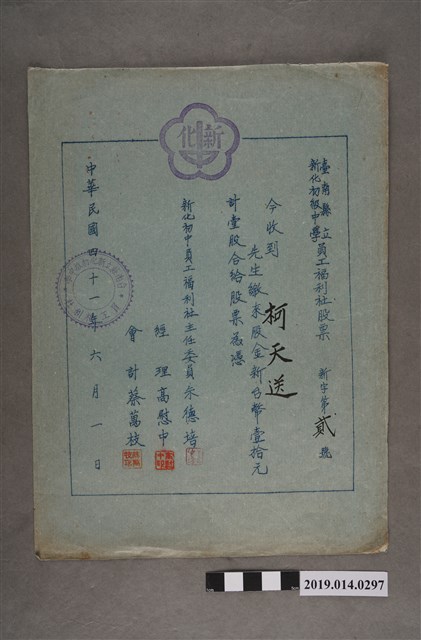 新化
臺南縣立新化初級中學員工福利社股票 新字第貳號
今收到
柯天送
先生繳來股金新台幣壹拾元
計壹股合給股票為憑
新化初中員工福利社主任委員朱德培
經理高慰中
會計蔡萬枝
中華民國四十一年六月一日
2019.014.0297